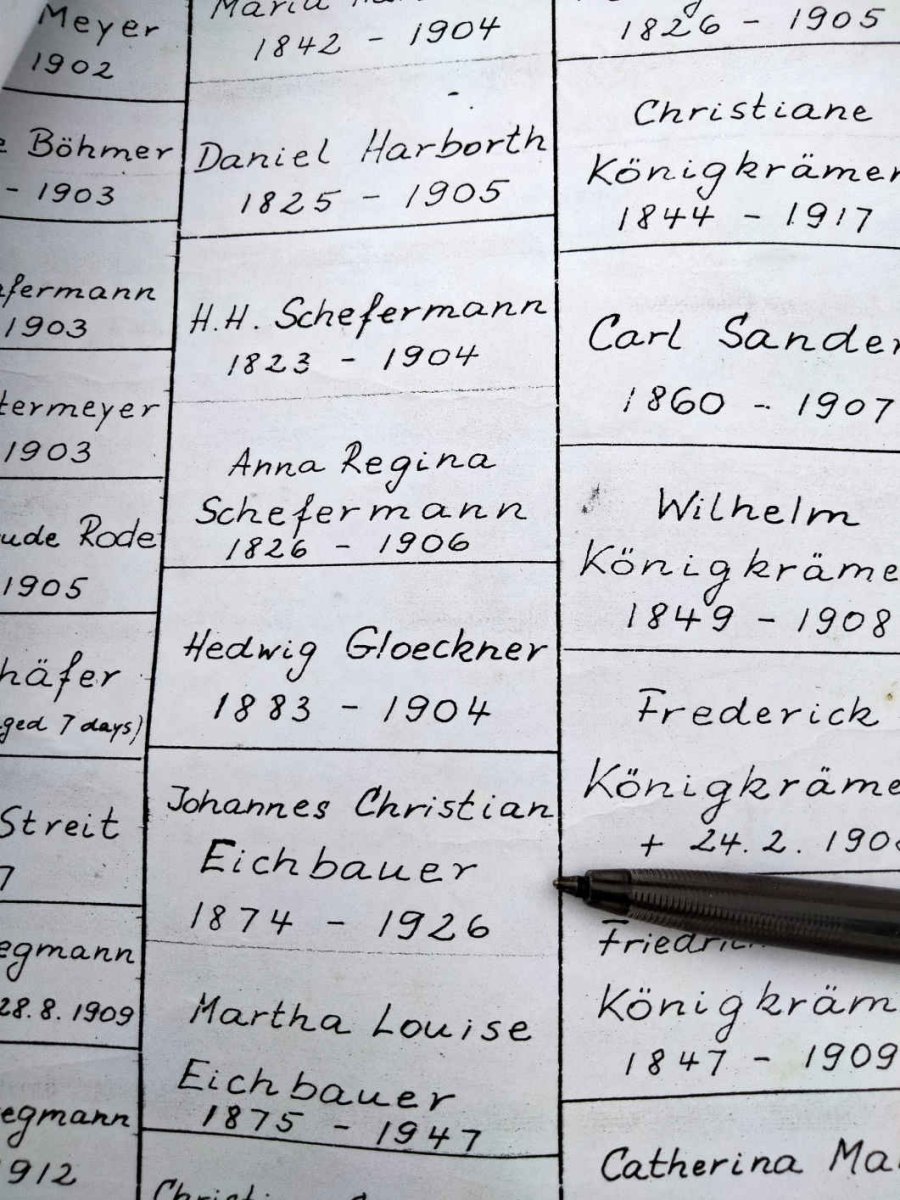 Meyer
1902
Böhmer
- 1903
1903
termeyer
1903
Rode
1905
7 days)
Streit
7
28.8.1909
1912
Maria
1842 - 1904
Daniel Harborth
1825 - 1905
H.H. Schefermann
1823 - 1904
Anna Regina
Schefermann
1826 - 1906
Hedwig Gloeckner
1883 - 1904
Johannes Christian
Eichbauer
1874 - 1926
Martha Louise
Eichbauer
1875 - 1947
1826 - 1905
Christiane
Königkrämer
1844 - 1917
Carl Sander
1860 - 1907
Wilhelm
Königkräme
1849 - 1908
Frederick
Königkräme
+ 24.2.190
Königkräm
1847 - 1909
Catherina Ma